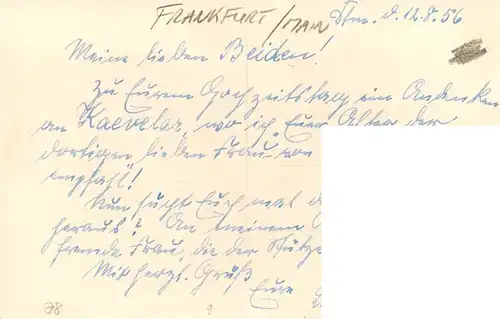 FRANKFURT/MAIN
Ffm. d. 12.8.56
Meine lieben Beiden!
Zu Eurem Hochzeitstag ein Andenken
an Kaevelar, wo ich Euer Alter der
dortigen "lieben Frau von
empfahl!
Nun sucht Euch mal d
heraus? An meinem
fremde Frau, die der Stütze
Mit herzl. Gruß
Eure
78
9